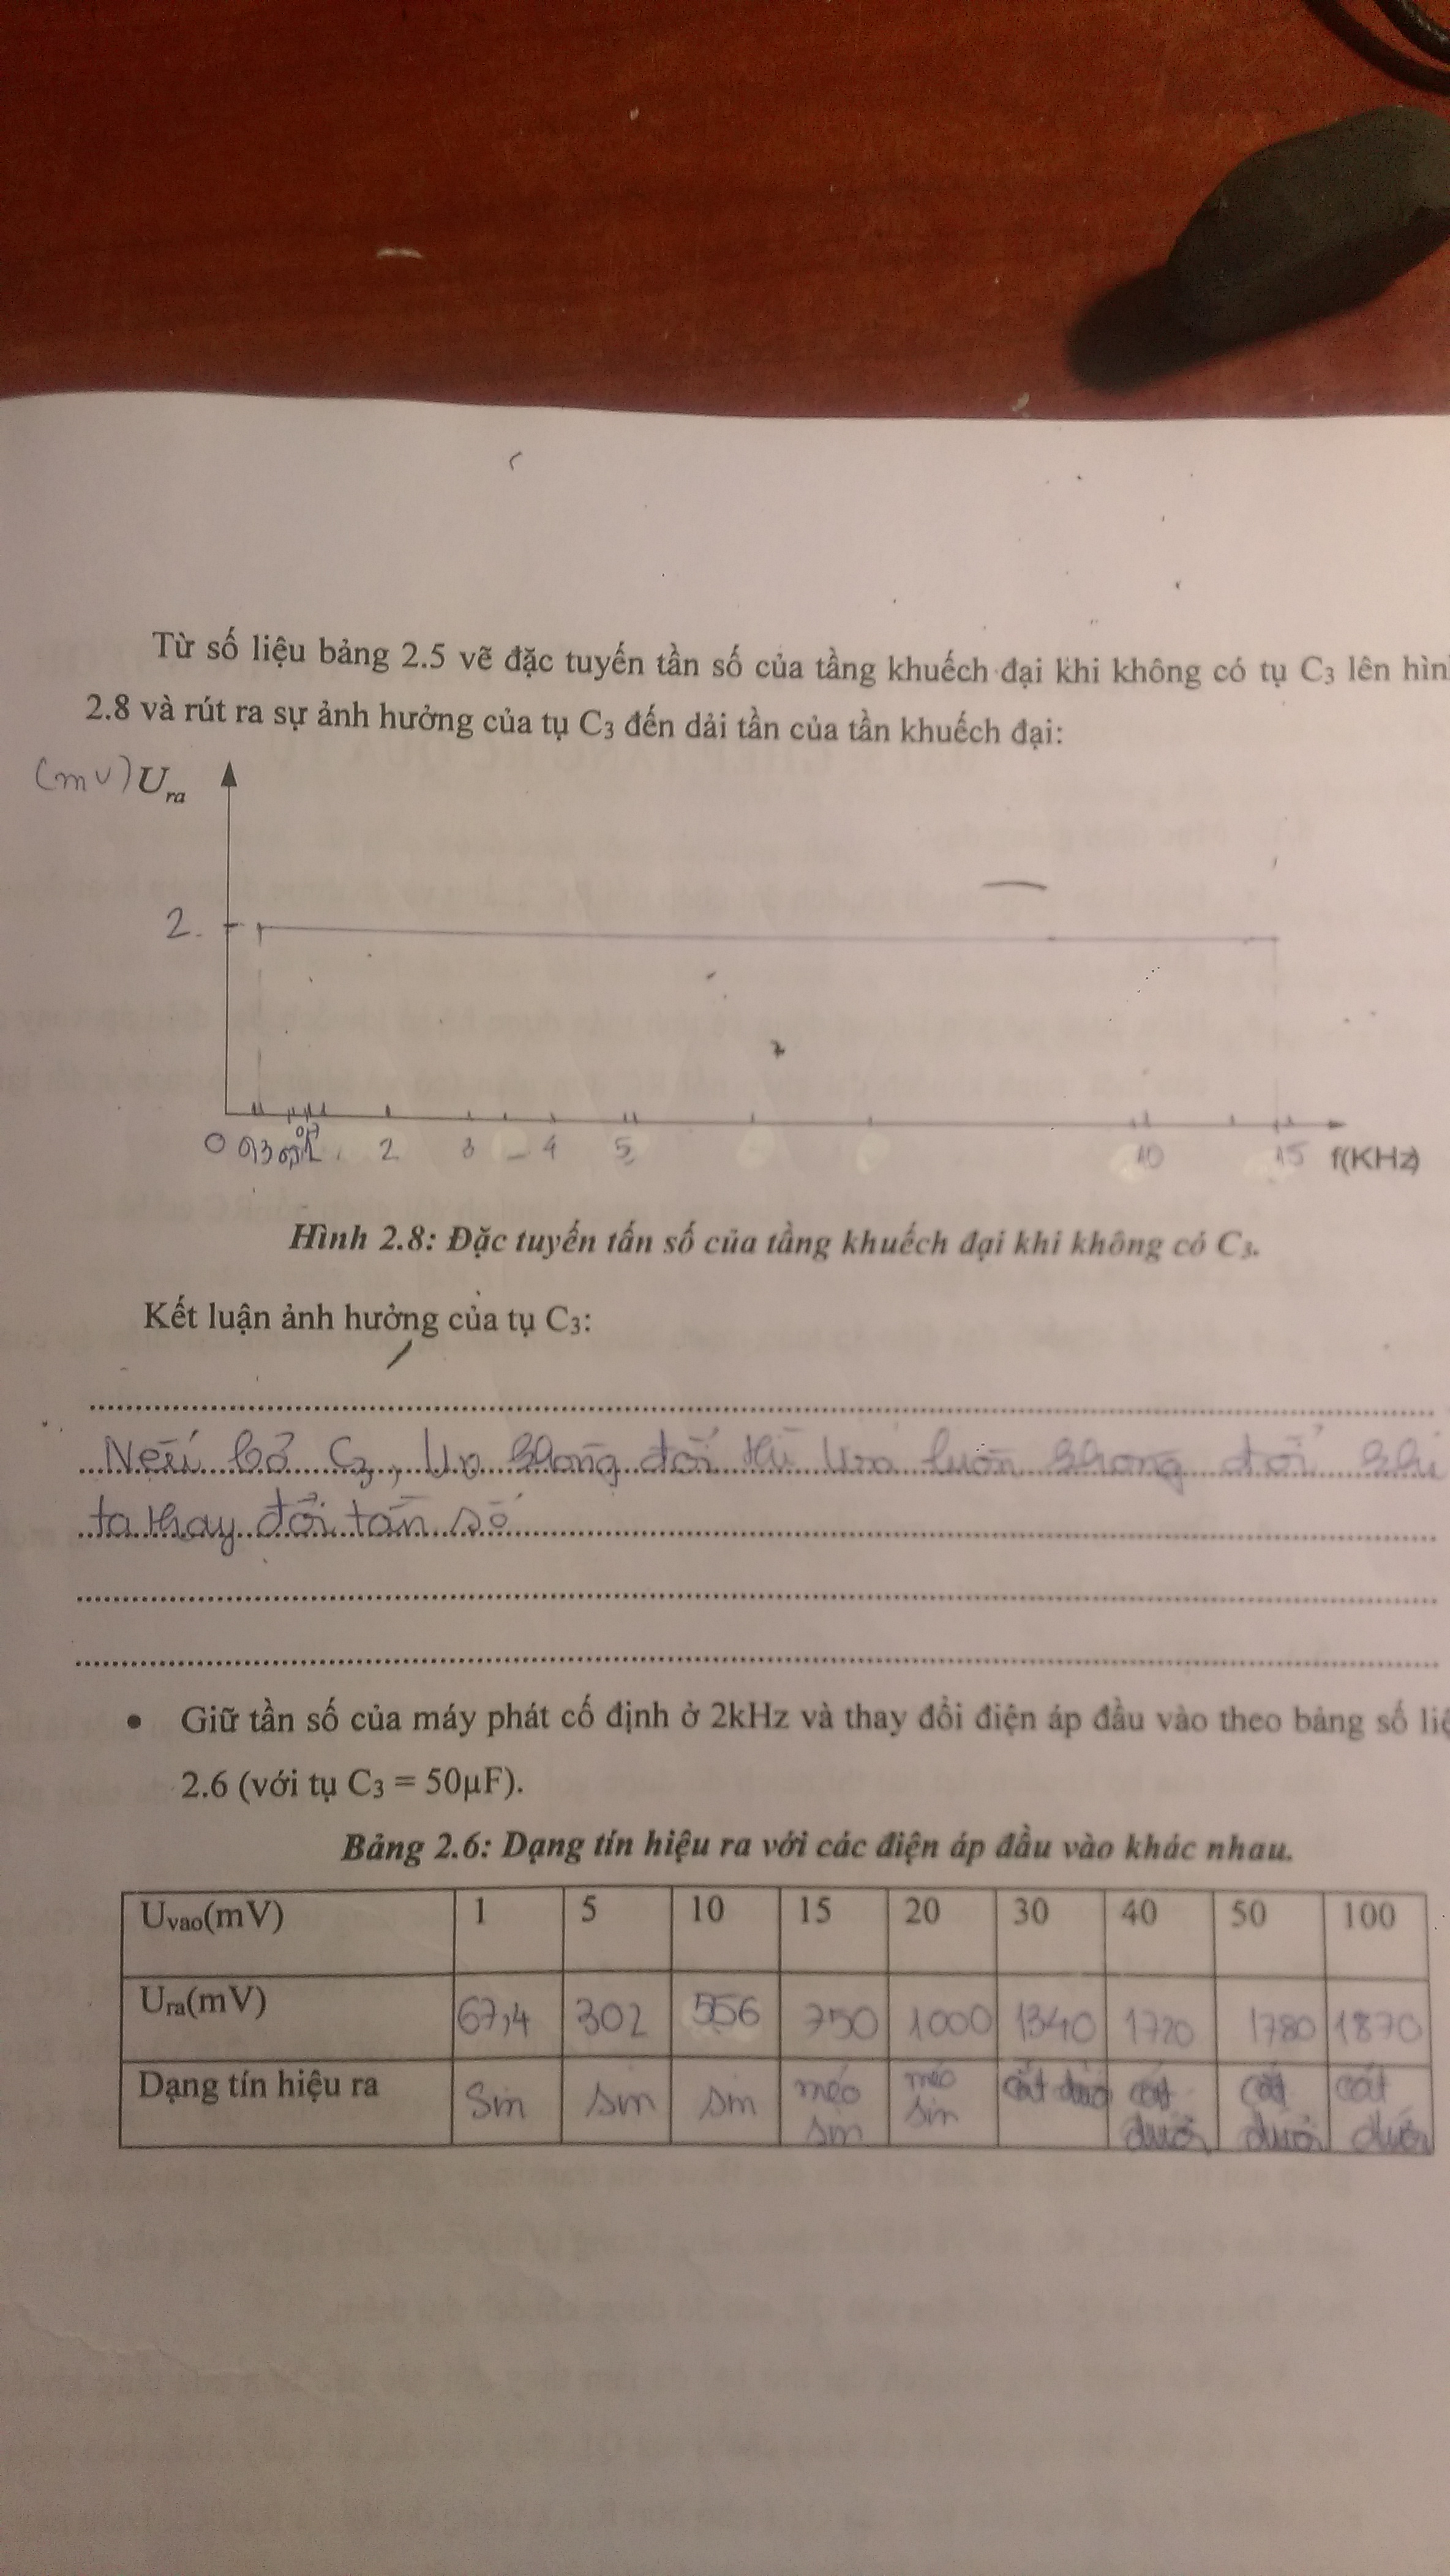 Từ số liệu bảng 2.5 vẽ đặc tuyến tần số của tầng khuếch đại khi không có tụ C3 lên hìn
2.8 và rút ra sự ảnh hưởng của tụ C3 đến dải tần của tần khuếch đại:
(mV) Ura
2
0 0,3 2 3 4 5 10 15 f(KHz)
Hình 2.8: Đặc tuyến tấn số của tầng khuếch đại khi không có C3.
Kết luận ảnh hưởng của tụ C3:
Nếu bỏ C3, Uv không đổi thì Ura luôn không đổi khi
ta thay đổi tần số
• Giữ tần số của máy phát cố định ở 2kHz và thay đổi điện áp đầu vào theo bảng số liệ
2.6 (với tụ C3 = 50µF).
Bảng 2.6: Dạng tín hiệu ra với các điện áp đầu vào khác nhau.
Uvao(mV) 1 5 10 15 20 30 40 50 100
Ura(mV) 67,4 302 556 750 1000 1340 1720 1780 1870
Dạng tín hiệu ra Sin sin sin méo sin méo sin cắt dưới cắt dưới cắt dưới cắt dưới